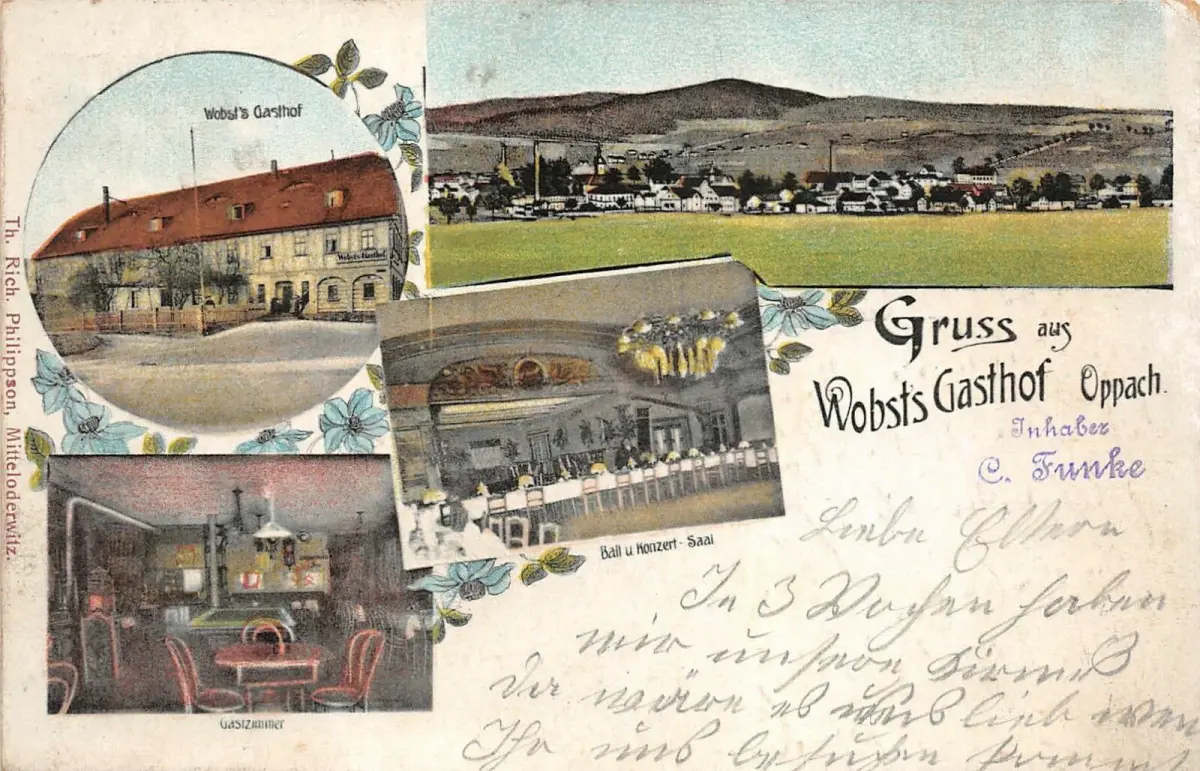 Wobst's Gasthof
Wobst's Gasthof
Th. Rich. Philippson, Mitteloderwitz.
Gruss aus
Wobst's Gasthof Oppach.
Inhaber
C. Funke
Ball u Konzert-Saal
Gastzimmer
Liebe Eltern
In 3 Wochen haben
wir unsere Kirmeß
Da wäre es uns lieb wen
Ihr uns besuchen kommt